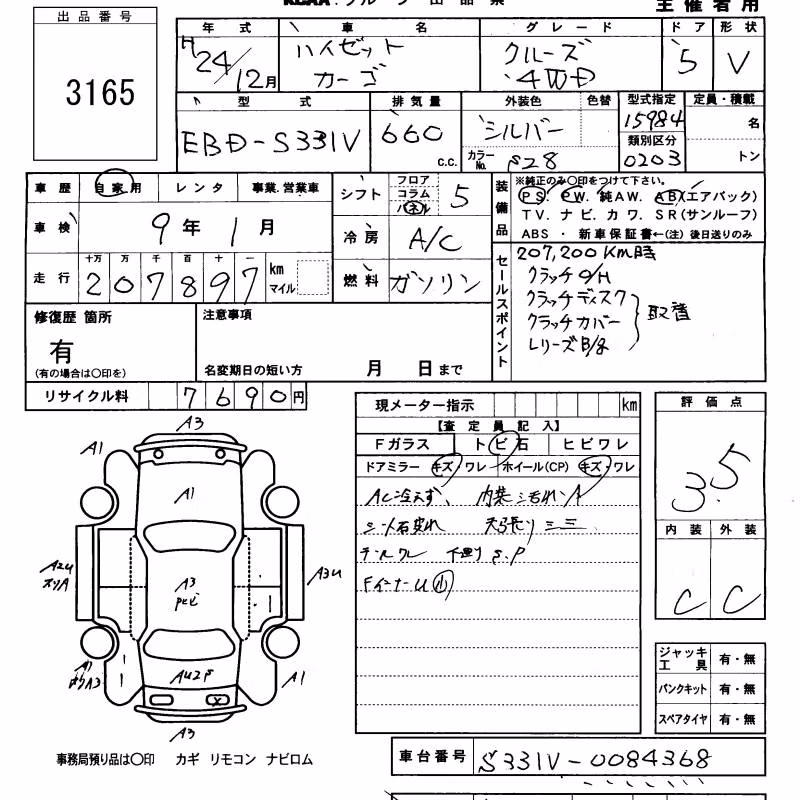 主催者用
出品番号
3165
年式 車名 グレード ドア 形状
H24/12月 ハイゼットカーゴ クルーズ 4WD 5 V
型式 排気量 外装色 色替 型式指定 定員・積載
EBD-S331V 660 c.c. シルバー カラーNo. S28 15984 類別区分 0203 名 トン
車歴 自家用 レンタ 事業.営業車
シフト フロア コラム パネル 5
車検 9年 1月
冷房 A/C
走行 十万 万 千 百 十 一 207897 km マイル
燃料 ガソリン
装備品 ※純正のみ〇印をつけて下さい。
PS. PW. 純AW. AB(エアバック)
TV. ナビ. カワ. SR(サンルーフ)
ABS ・ 新車保証書←(注) 後日送りのみ
セールスポイント
207,200KM時
クラッチO/H
クラッチディスク
クラッチカバー 取替
レリーズB/g
修復歴 箇所
有
(有の場合は〇印を)
注意事項
名変期日の短い方 月 日まで
リサイクル料 7690円
現メーター指示 km
【査定員記入】
Fガラス トビ石 ヒビワレ
ドアミラー キズ・ワレ ホイール(CP) キズ・ワレ
AC冷えず、 内装ヨゴレA
シート破れ
S.P
評価点
3.5
内装 外装
C C
A3
A1
A1
A2U
A3
A3U
A1
A3
AU2P
A1
A3
ジャッキ工具 有・無
パンクキット 有・無
スペアタイヤ 有・無
事務局預り品は〇印 カギ リモコン ナビロム
車台番号 S331V-0084368